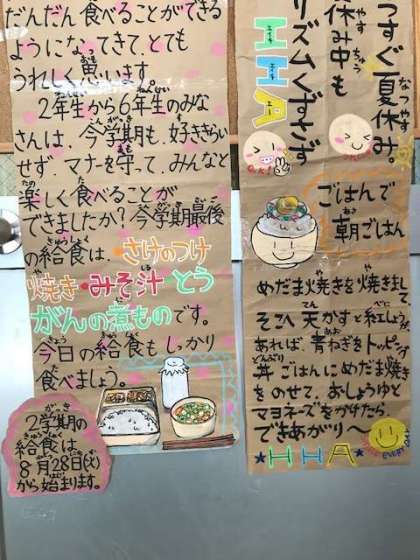 だんだん食べることができる
ようになってきて、とても
うれしく思います。
2年生から6年生のみな
さんは、今学期も、好ききらい
せず、マナーを守って、みんなと
楽しく食べることが
できましたか?今学期最後
の給食は、さけのつけ
焼き・みそ汁・とう
がんの煮ものです。
今日の給食もしっかり
食べましょう。
2学期の
給食は
8月28日(火)
から始まります。
つすぐ夏休み。
休み中も
リズムくずさず
HHA
ごはんで
朝ごはん
めだま焼きを焼きまして
そこへ天かすと紅しょうが
あれば、青ねぎをトッピング
丼ごはんにめだま焼き
をのせて、おしょうゆと
マヨネーズをかけたら、
できあがり〜
★HHA★